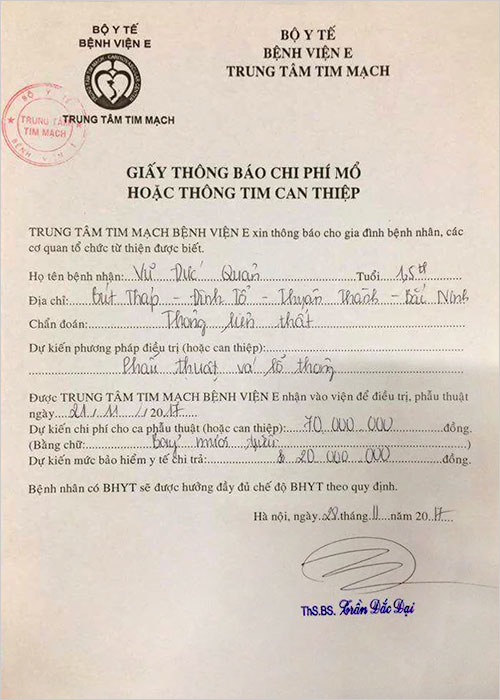 BỘ Y TẾ
BỆNH VIỆN E
TRUNG TÂM TIM MẠCH
BỘ Y TẾ
BỆNH VIỆN E
TRUNG TÂM TIM MẠCH
BỘ Y TẾ
TRUNG TÂM
TIM MẠCH
BỆNH VIỆN E
GIẤY THÔNG BÁO CHI PHÍ MỔ
HOẶC THÔNG TIM CAN THIỆP
TRUNG TÂM TIM MẠCH BỆNH VIỆN E xin thông báo cho gia đình bệnh nhân, các
cơ quan tổ chức từ thiện được biết.
Họ tên bệnh nhân: Vũ Đức Quân Tuổi 1,5th
Địa chỉ: Bút Tháp - Đình Tổ - Thuận Thành - Bắc Ninh
Chẩn đoán: Thông liên thất
Dự kiến phương pháp điều trị (hoặc can thiệp):
Phẫu thuật vá lỗ thông
Được TRUNG TÂM TIM MẠCH BỆNH VIỆN E nhận vào viện để điều trị, phẫu thuật
ngày 21/11/2017
Dự kiến chi phí cho ca phẫu thuật (hoặc can thiệp): 70 000 000 đồng.
(Bằng chữ: Bảy mươi triệu)
Dự kiến mức bảo hiểm y tế chi trả: 20 000 000 đồng.
Bệnh nhân có BHYT sẽ được hưởng đầy đủ chế độ BHYT theo quy định.
Hà nội, ngày 28 tháng 11 năm 2017
ThS.BS. Trần Đắc Đại